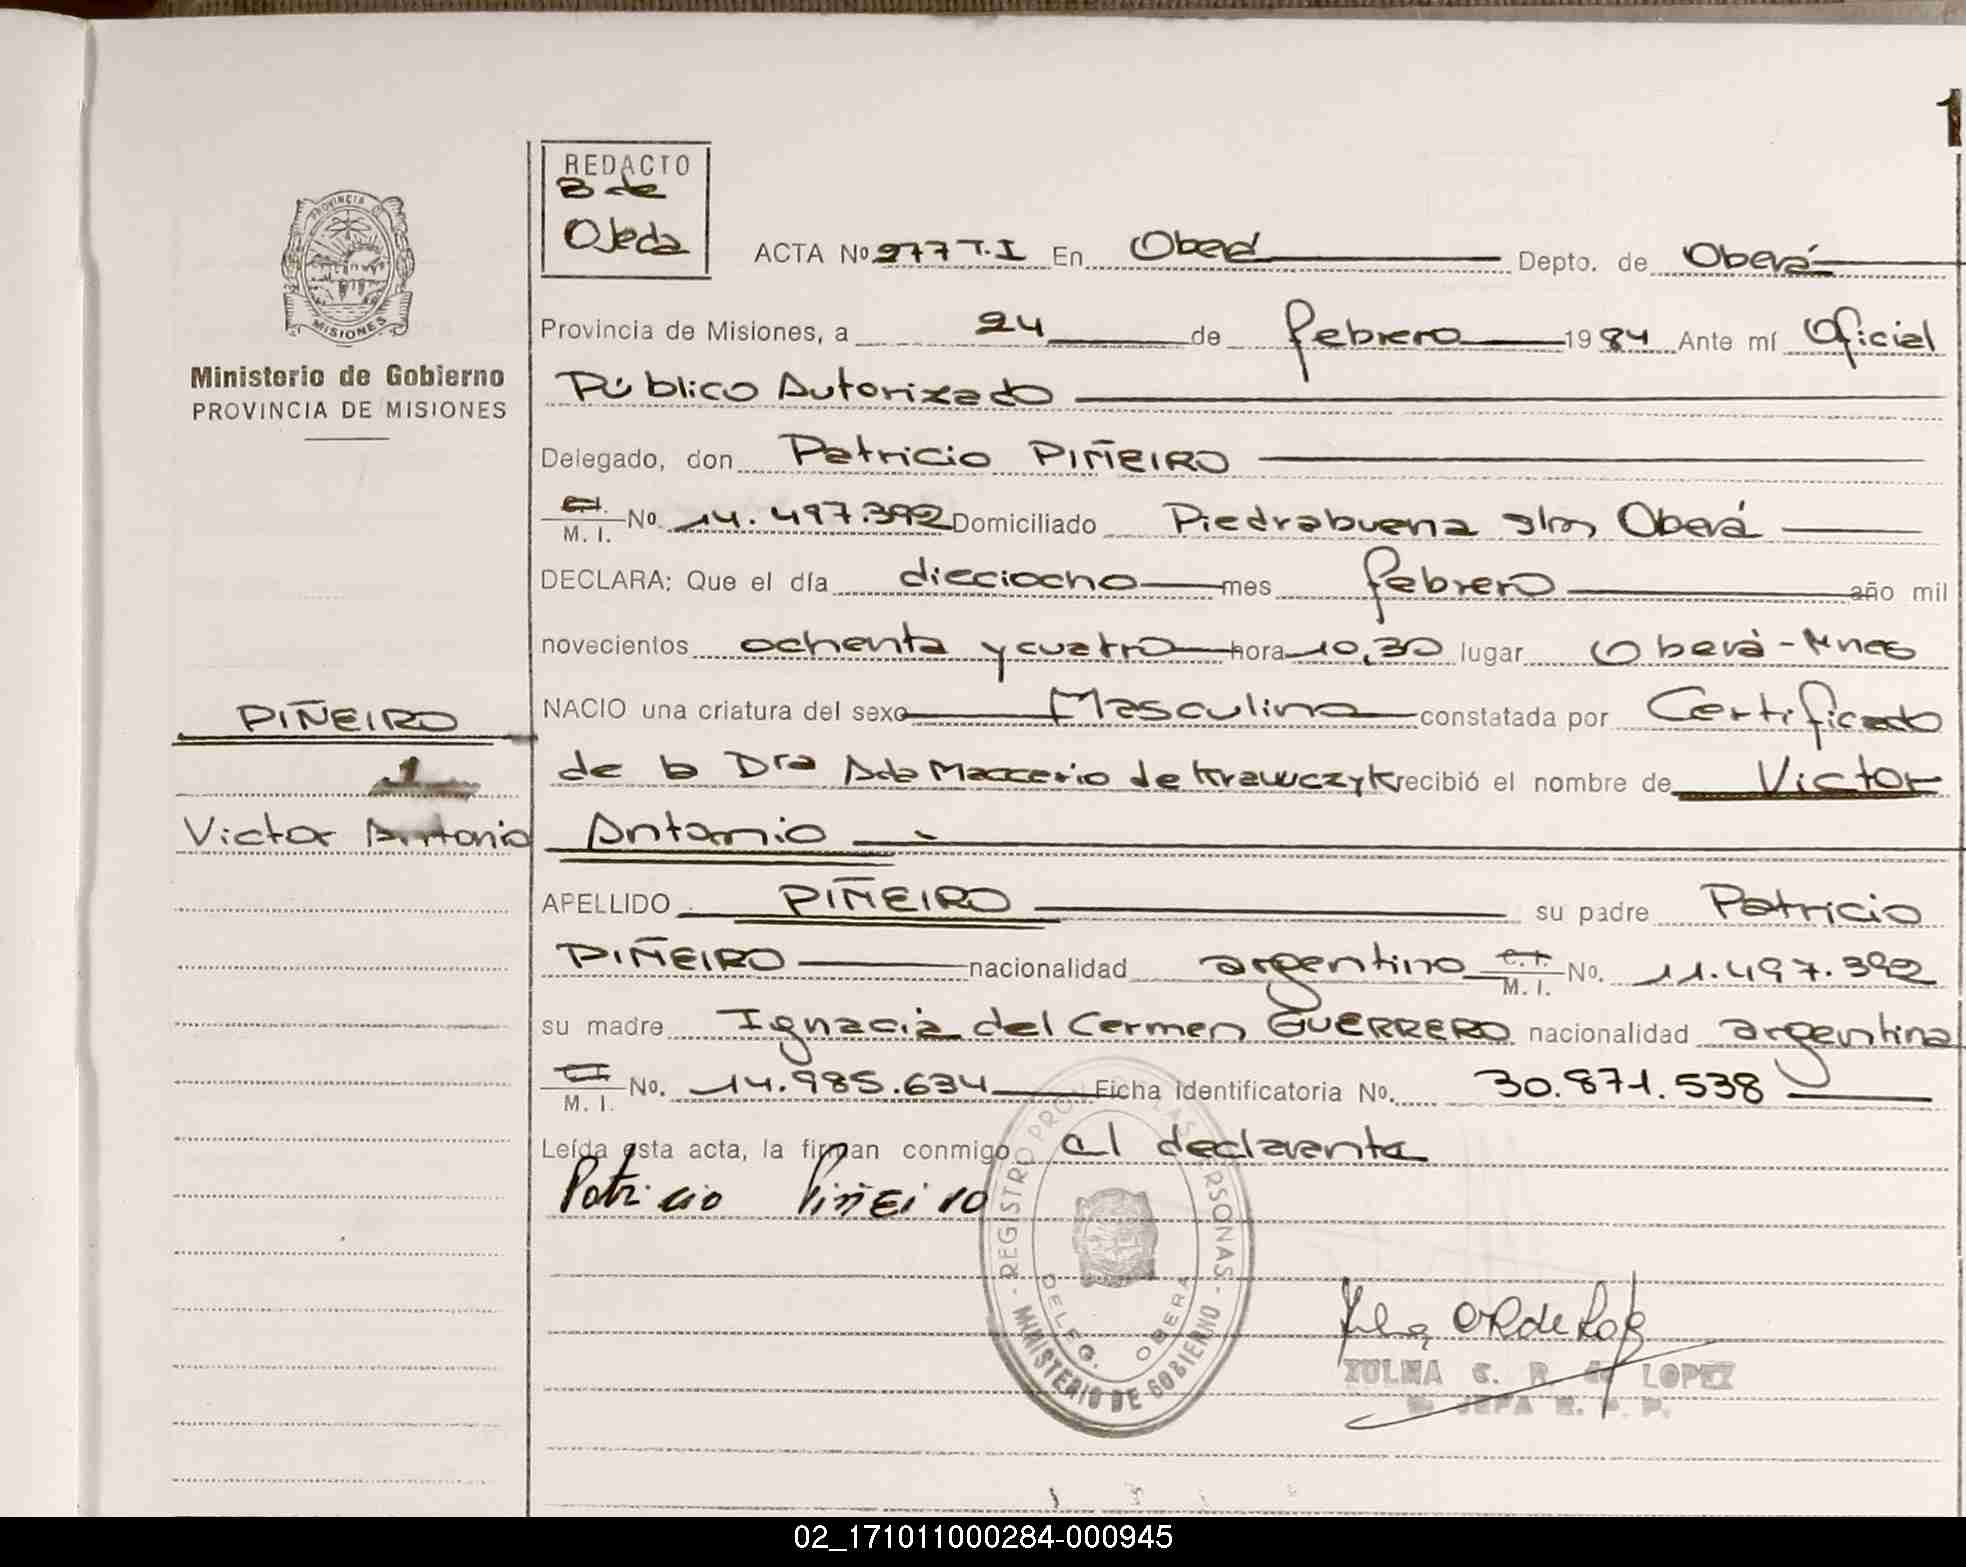 1
REDACTO
B de
Ojeda
PROVINCIA
MISIONES
Ministerio de Gobierno
PROVINCIA DE MISIONES
ACTA No 277 T.I En Oberá Depto. de Oberá
Provincia de Misiones, a 24 de febrero 1984 Ante mí Oficial
Público Autorizado
Delegado, don Patricio PIÑEIRO
C.I.
M. I. No. 14.497.392 Domiciliado Piedrabuena s/n, Oberá
DECLARA: Que el día dieciocho mes febrero año mil
novecientos ochenta y cuatro hora 10,30 lugar Oberá - Mnes
PIÑEIRO
NACIO una criatura del sexo Masculino constatada por Certificado
1
de la Dra Ada Maccerio de Krawczyk recibió el nombre de Victor
Victor Antonio
Antonio
APELLIDO PIÑEIRO su padre Patricio
PIÑEIRO nacionalidad argentino C.I. M. I. No. 11.497.392
su madre Ignacia del Carmen GUERRERO nacionalidad argentina
C.I.
M. I. No. 14.985.634 Ficha identificatoria No. 30.871.538
Leída esta acta, la firman conmigo el declarante
Patricio Piñeiro
REGISTRO PROV. LAS PERSONAS
DELEG. OBERA
MINISTERIO DE GOBIERNO
ZULMA G. R. de LOPEZ
JEFA R. P. P.
02_171011000284-000945